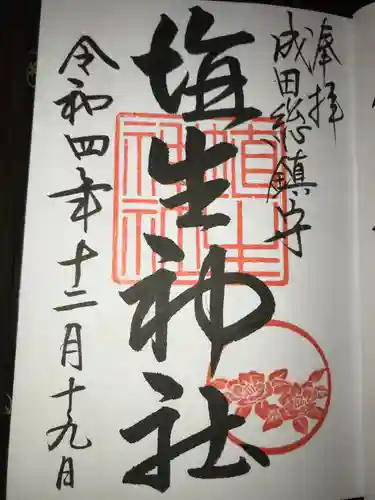 奉拝
成田総鎮守
埴生神社
埴生
神社
令和四年十二月十九日